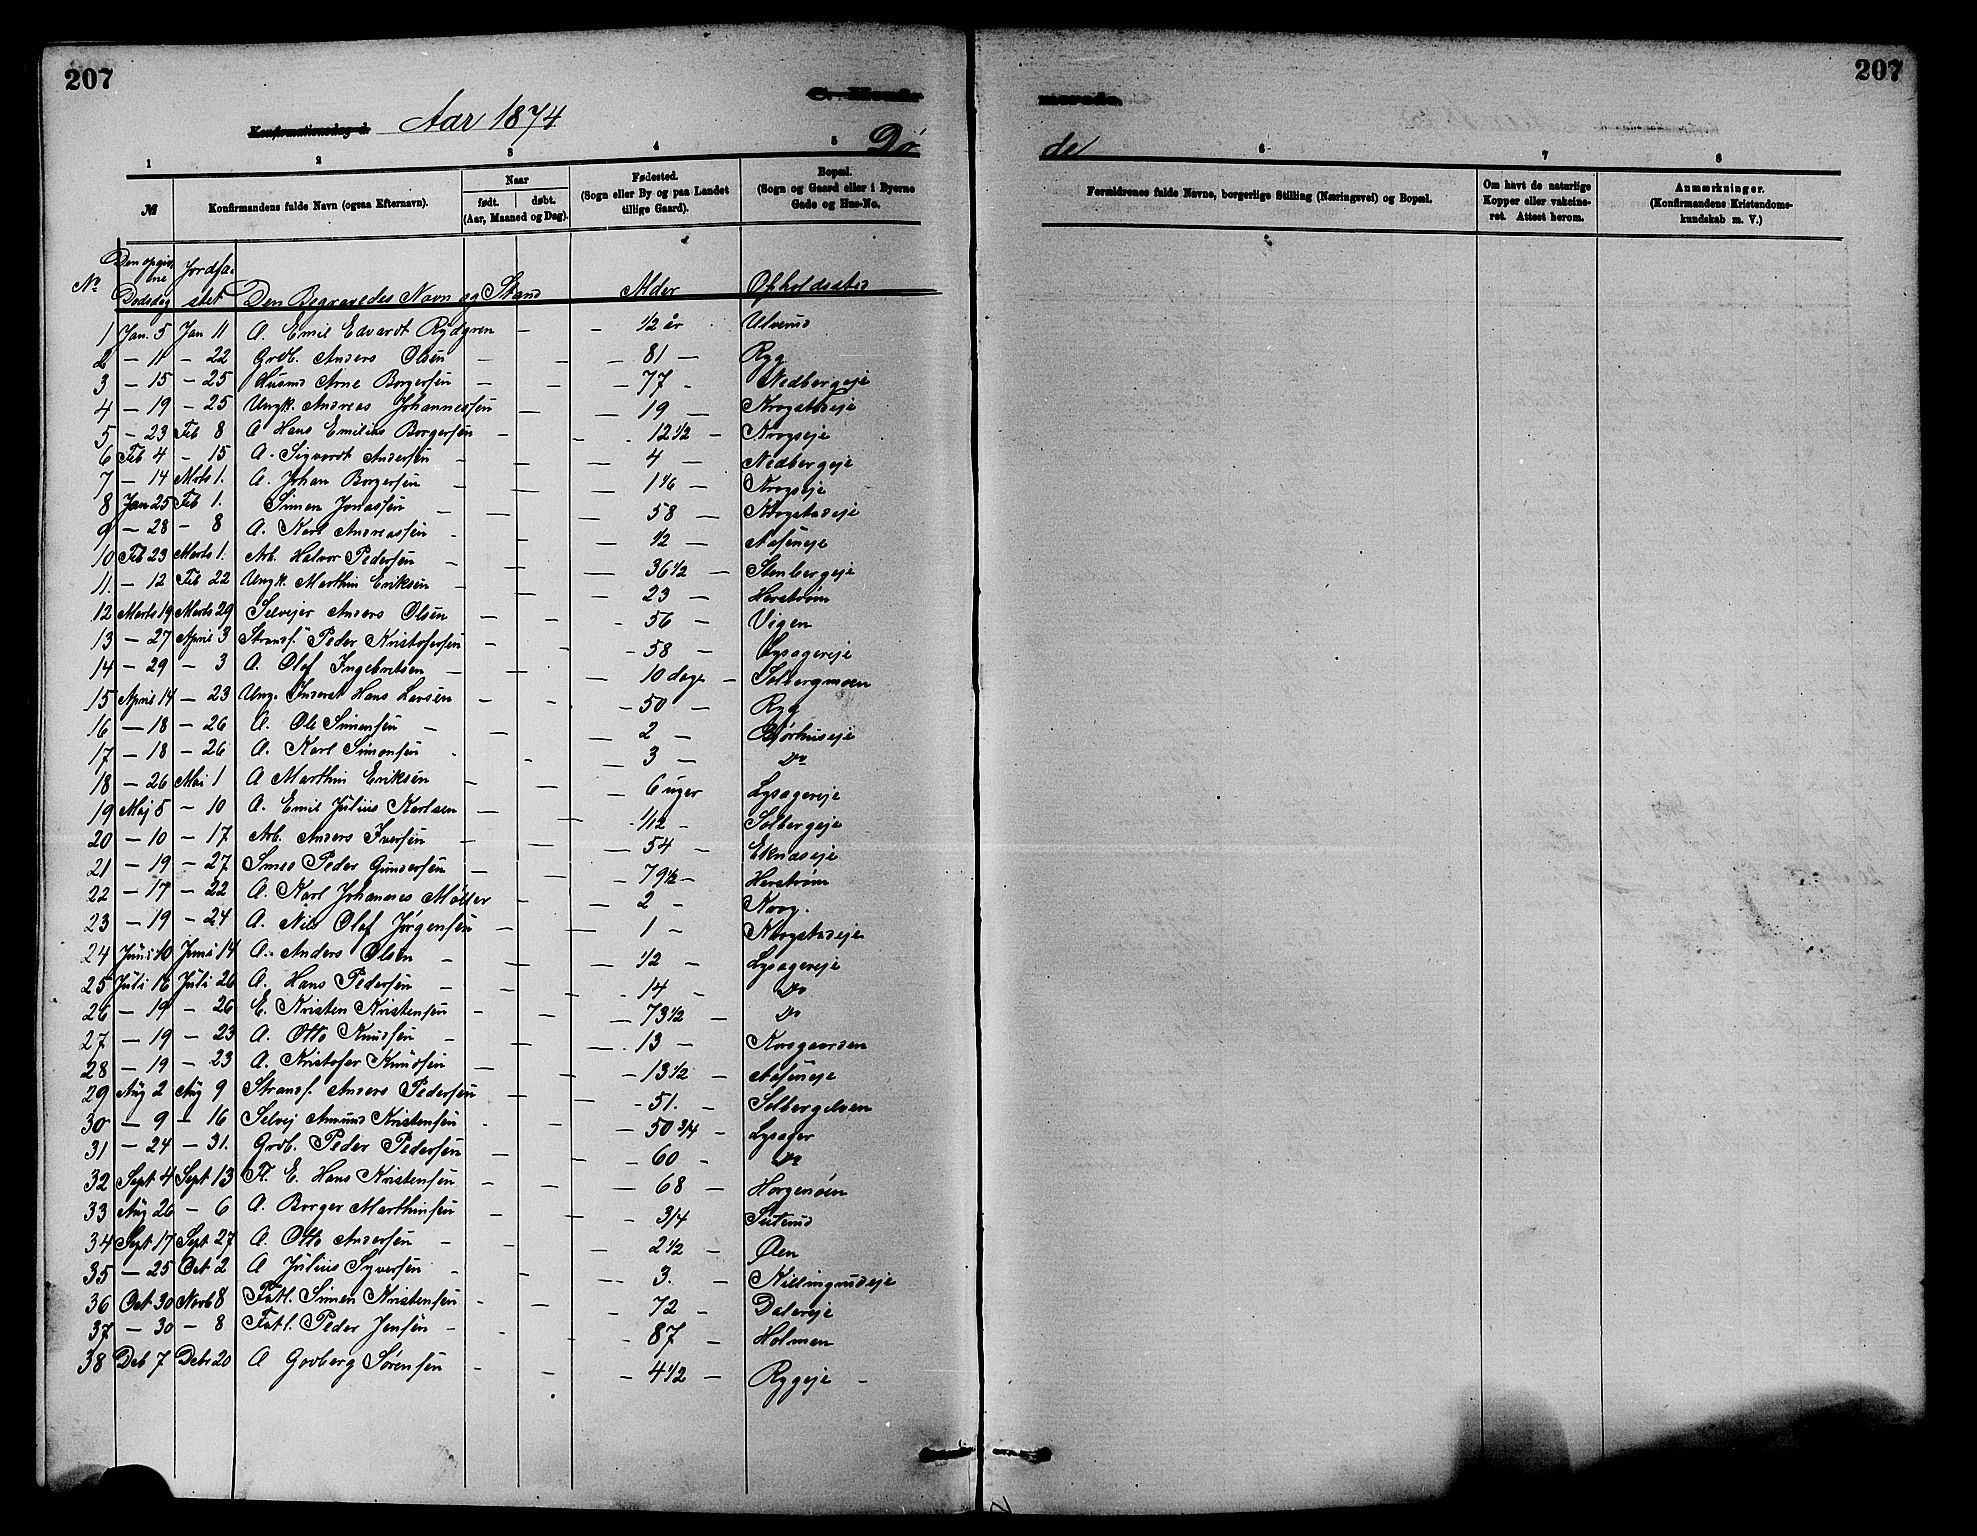 207
207
Konfirmationsdag d. Aar 1874
C. Konfir
merede.
Dø
de
1 2 3 4 5 6 7 8
№
Konfirmandens fulde Navn (ogsaa Efternavn).
Naar
født. døbt.
(Aar, Maaned og Dag).
Fødested.
(Sogn eller By og paa Landet
tillige Gaard).
Bopæl.
(Sogn og Gaard eller i Byerne
Gade og Hus-No.
Forældrenes fulde Navne, borgerlige Stilling (Næringsvei) og Bopæl.
Om havt de naturlige
Kopper eller vakcine-
ret. Attest herom.
Anmærkninger.
(Konfirmandens Kristendoms-
kundskab m. V.)
No Den opgiv- ne Dødsdag Jordfæ- stet Den Begravedes Navn og Stand Alder Opholdssted
1 Jan. 5 Jan 11 A. Emil Edvardt Rydgren — — 1/2 år Ulverud
2 — 11 — 22 Grdb. Anders Olsen — — 81 — Ryg
3 — 15 — 25 Husmd Arne Borgersen — — 77 Nedbergeje
4 — 19 — 25 Ungk. Andreas Johannessen — — 19 — Krogstadeje
5 — 23 Feb 8 A Hans Emilius Borgersen — — 12 1/2 — Krogseje
6 Feb 4 — 15 A. Sigvardt Andersen — — 4 — Nedbergeje
7 — 14 Marts 1. A. Johan Borgersen — — 1 1/6 — Krogseje
8 Jan 25 Feb 1. Simen Jonassen — — 58 — Krogstadeje
9 — 28 — 8 A. Karl Andreassen — — 1/2 — Aaseneje
10 Feb 23 Marts 1. Arb. Halvor Pedersen — — 36 1/2 — Stenbergeje
11. — 12 Feb 22 Ungk. Marthin Eriksen — — 23 — Herstrøm
12 Marts 19 Marts 29 Selvejer Anders Olsen — — 56 — Vigen
13 — 27 April 3 Strandf. Peder Kristofersen — 58 — Lysagereje
14 — 29 — 3 A. Olaf Ingebretsen — — 10 dage — Solbergmoen
15 April 14 — 23 Ung. Inderst Hans Larsen — — 50 — Ryg
16 — 18 — 26 A. Ole Simensen — — 2 — Gjørhuseje
17 — 18 — 26 A. Karl Simonsen — 3 — Do
18 — 26 Mai 1 A Marthin Eriksen — — 6 uger Lysagereje
19 Maj 5 — 10 A. Emil Julius Karlsen — — 1/12 — Solbergeje
20 — 10 — 17 Arb. Anders Iversen — — 54 — Eknæseje
21 — 19 — 27 Smed Peder Gundersen — — 79 1/2 — Herstrøm
22 — 17 — 22 A. Karl Johannes Møller — — 2 — Krog.
23 — 19 — 24 A. Nils Olaf Jørgensen — — 1 — Krogstadeje
24 Juni 10 Juni 14 A. Anders Olsen — — 1/2 — Lysagereje
25 Juli 16 Juli 26 A. Hans Pedersen — — 14 — Do
26 — 19 — 26 E. Kristen Kristensen — — 73 1/2 — Do
27 — 19 — 23 A. Otto Knudsen — — 13 — Korsgaarden
28 — 19 — 23 A. Kristofer Knudsen — — 13 1/2 — Aaseneje
29 Aug 2 Aug 9 Strandf. Anders Pedersen — — 51. — Solbergelven
30 — 9 — 16 Selvej Amund Kristensen — — 50 3/4 — Lysager
31 — 24 — 31. Grdb. Peder Pedersen — — 60 — Do
32 Sept 4 Sept 13 F. E. Hans Kristensen — — 68 — Horgenøen
33 Aug 26 — 6 A. Borger Marthinsen — — 3/4 —
34 Sept 17 Sept 27 A. Otto Andersen — — 2 1/2 — Øen
35 — 25 Oct 2 A Julius Syversen — — 3. — Killingrudeje
36 Oct 30 Novb 8 Fatl. Simen Kristensen — — 72 — Dalereje
37 — 30 — 8 Fatl. Peder Jensen — — 87 — Holmen
38 Deb 7 Debr 20 A Godberg Sørensen — — 4 1/2 — Ryggeje —